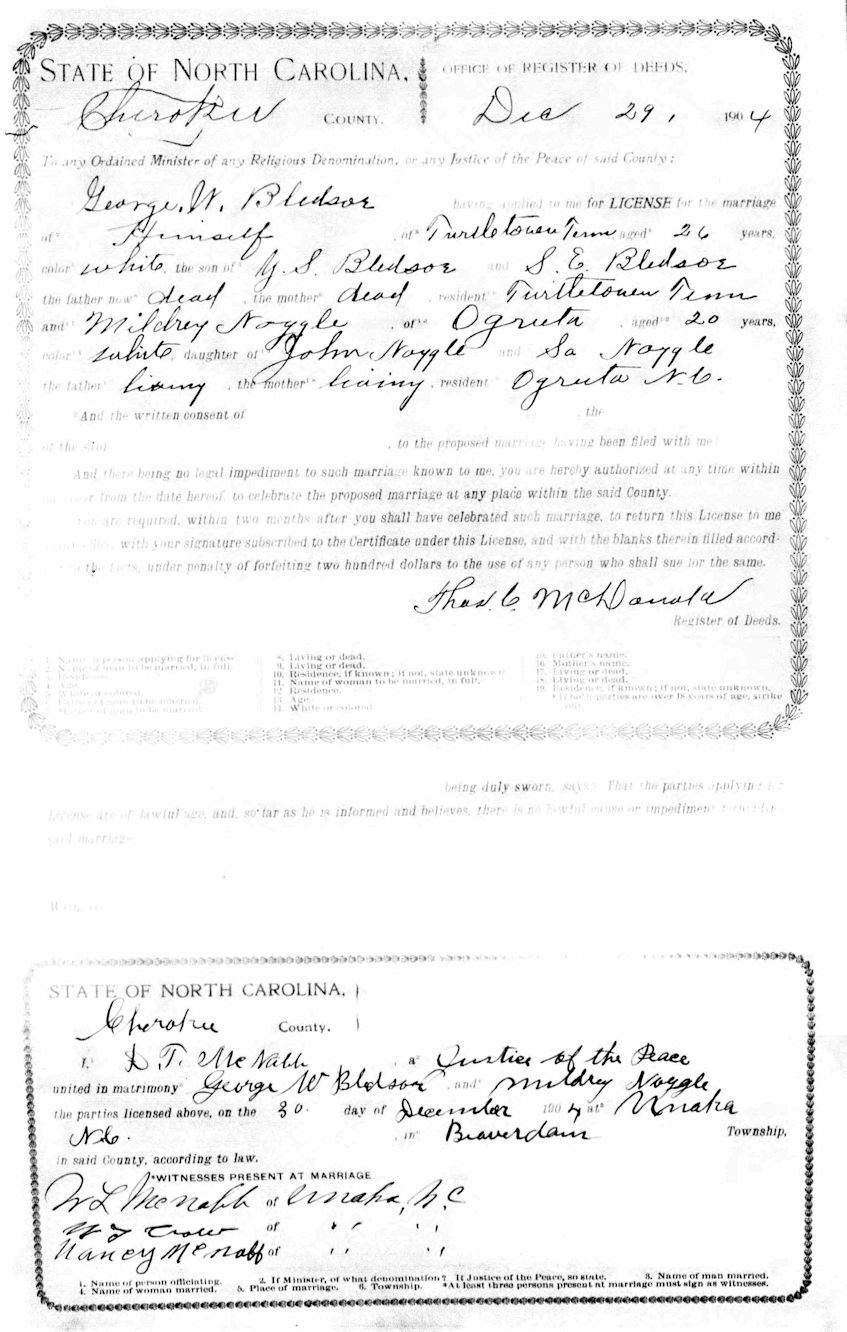 STATE OF NORTH CAROLINA, OFFICE OF REGISTER OF DEEDS,
Cherokee COUNTY. Dec 29, 1904
To any Ordained Minister of any Religious Denomination, or any Justice of the Peace of said County:
George W. Bledsoe having applied to me for LICENSE for the marriage
of Himself, of Turtletown Tenn aged 26 years,
color white, the son of Y. S. Bledsoe and S. E. Bledsoe
the father now dead, the mother dead, resident Turtletown Tenn
and Mildrey Noggle, of Ogreeta, aged 20 years,
color white, daughter of John Noggle and Sa Noggle
the father living, the mother living, resident Ogreeta N.C.
*And the written consent of , the
of the said , to the proposed marriage having been filed with me:
And there being no legal impediment to such marriage known to me, you are hereby authorized at any time within
year from the date hereof, to celebrate the proposed marriage at any place within the said County.
are required, within two months after you shall have celebrated such marriage, to return this License to me
with your signature subscribed to the Certificate under this License, and with the blanks therein filled accord-
the facts, under penalty of forfeiting two hundred dollars to the use of any person who shall sue for the same.
Thos. C. McDonald
Register of Deeds.
1. Name of person applying for license
2. Name of man to be married, in full.
3. Residence.
4. Age.
5. White or colored.
8. Living or dead.
9. Living or dead.
10. Residence, if known; if not, state unknown
11. Name of woman to be married, in full.
12. Residence.
13. Age.
14. White or colored.
15. Father's name.
16. Mother's name.
17. Living or dead.
18. Living or dead.
19. Residence, if known; if not, state unknown.
*If such parties are over 18 years of age, strike
out.
being duly sworn, says: That the parties applying for
License are of lawful age, and, so far as he is informed and believes, there is no lawful cause or impediment
said marriage
STATE OF NORTH CAROLINA,
Cherokee County.
I, D T. McNabb, a Justice of the Peace
united in matrimony George W Bledsoe, and Mildrey Noggle
the parties licensed above, on the 30 day of December 1904 at Unaka
N.C., in Beaverdam Township,
in said County, according to law.
*WITNESSES PRESENT AT MARRIAGE
W L McNabb of Unaka, N.C
of " "
Nancy McNabb of " "
1. Name of person officiating. 2. If Minister, of what denomination? If Justice of the Peace, so state. 3. Name of man married.
4. Name of woman married. 5. Place of marriage. 6. Township. *At least three persons present at marriage must sign as witnesses.